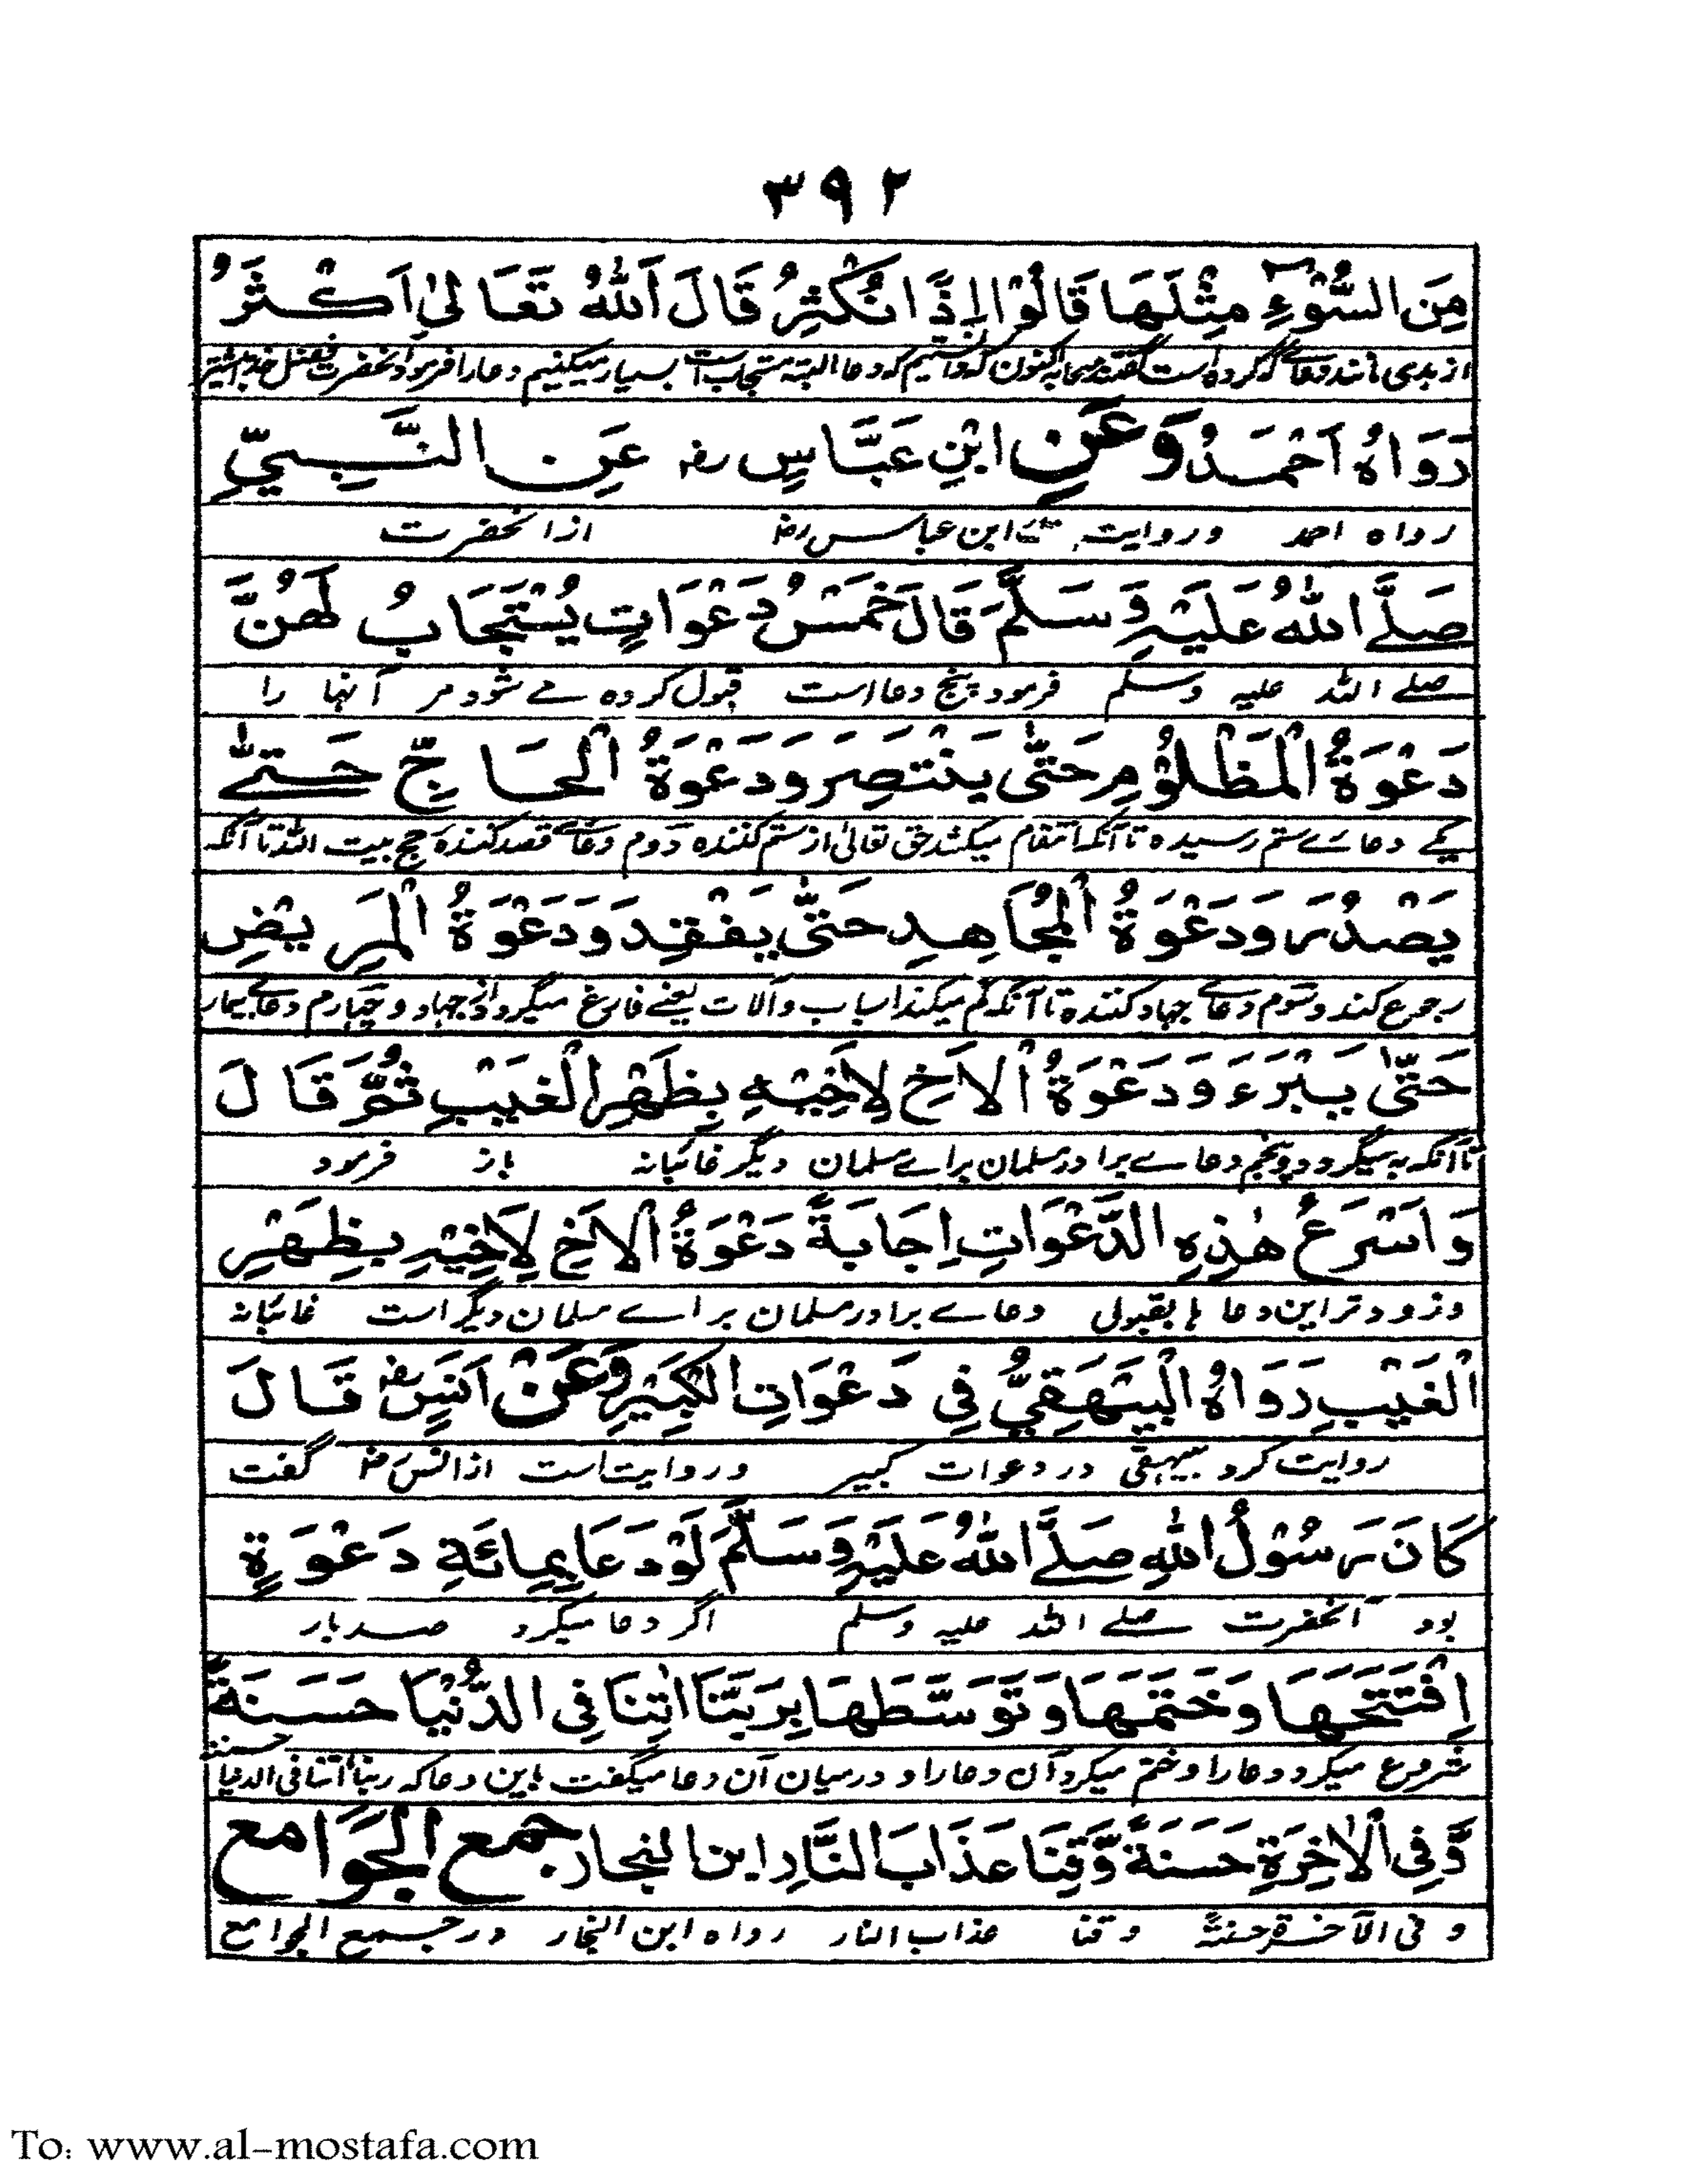 ٣٩٢
مِنَ السُّوْٓءِ مِثْلَهَا قَالُوْا اِذًا نُكْثِرُ قَالَ اَللّٰهُ تَعَالٰى اَكْثَرُ
از بدی مانند دعای که کرده است گفتند صحابه اکنون که دانستیم که دعا البته مستجاب است بسیار میکنیم دعا را فرمود آنحضرت فضل خدا بیشتر
رَوَاهُ اَحْمَدُ وَعَنِ ابْنِ عَبَّاسٍ رضه عَنِ النَّبِيِّ
رواه احمد و روایت است ابن عباس رض از آنحضرت
صَلَّے اللّٰهُ عَلَيْهِ وَسَلَّمَ قَالَ خَمْسُ دَعْوَاتٍ يُسْتَجَابُ لَهُنَّ
صلے اللہ علیہ وسلم فرمود پنج دعا است قبول کرده مے شود مر آنها را
دَعْوَةُ الْمَظْلُوْمِ حَتّٰى يَنْتَصِرَ وَدَعْوَةُ الْحَاجِّ حَتّٰے
یکے دعاے ستم رسیده تا آنکه انتقام میکشد حق تعالیٰ از ستم کننده دوم دعاے قصد کننده حج بیت اللہ تا آنکه
يَصْدُرَ وَدَعْوَةُ الْمُجَاهِدِ حَتّٰى يَفْقِدَ وَدَعْوَةُ الْمَرِيْضِ
رجوع کند و سوم دعاے جهاد کننده تا آنکه گم میکند اسباب و آلات یعنے فارغ میگردد از جهاد و چهارم دعاے بیمار
حَتّٰى يَبْرَءَ وَدَعْوَةُ الْاَخِ لِاَخِيْهِ بِظَهْرِ الْغَيْبِ ثُمَّ قَالَ
تا آنکه به میگردد و پنجم دعاے برادر مسلمان براے مسلمان دیگر غائبانه باز فرمود
وَاَسْرَعُ هٰذِهِ الدَّعْوَاتِ اِجَابَةً دَعْوَةُ الْاَخِ لِاَخِيْهِ بِظَهْرِ
و زودتر این دعا ها بقبولی دعاے برادر مسلمان براے مسلمان دیگر است غائبانه
الْغَيْبِ رَوَاهُ الْبَيْهَقِيُّ فِي دَعْوَاتِ الْكَبِيْرِ وَعَنْ اَنَسٍ رضه قَالَ
روایت کرد بیهقی در دعوات کبیر و روایت است از انس رض گفت
كَانَ رَسُوْلُ اللّٰهِ صَلَّے اللّٰهُ عَلَيْهِ وَسَلَّمَ لَوْ دَعَا بِمِائَةِ دَعْوَةٍ
بود آنحضرت صلے اللہ علیہ وسلم اگر دعا میکرد صد بار
اِفْتَتَحَهَا وَخَتَمَهَا وَتَوَسَّطَهَا بِرَبَّنَا اٰتِنَا فِي الدُّنْيَا حَسَنَةً
شروع میکرد دعا را و ختم میکرد آن دعا را و درمیان آن دعا میگفت باین دعا که ربنا آتنا فی الدنیا حسنة
وَّفِي الْاٰخِرَةِ حَسَنَةً وَّقِنَا عَذَابَ النَّارِ ابن النجار جمع الجَوَامع
و فی الآخرة حسنة و قنا عذاب النار رواه ابن النجار در جمع الجوامع
To: www.al-mostafa.com